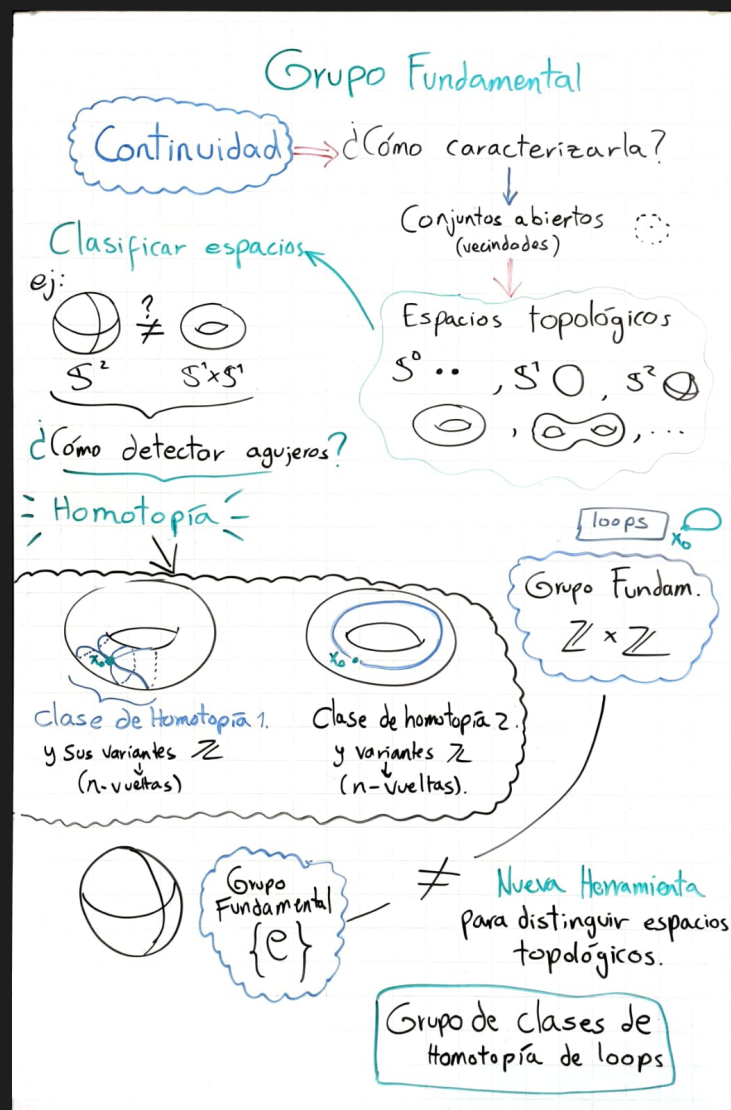 Grupo Fundamental
Continuidad
¿Cómo caracterizarla?
Conjuntos abiertos
(vecindades)
Clasificar espacios
ej:
?
≠
S² S¹×S¹
Espacios topológicos
S⁰ , S¹ , S²
, , ...
¿Cómo detectar agujeros?
Homotopía
loops
x₀
Grupo Fundam.
ℤ × ℤ
x₀
x₀
Clase de Homotopía 1.
y sus variantes ℤ
(n-vueltas)
Clase de homotopía 2.
y variantes ℤ
(n-vueltas).
Grupo
Fundamental
{e}
≠
Nueva Herramienta
para distinguir espacios
topológicos.
Grupo de clases de
Homotopía de loops